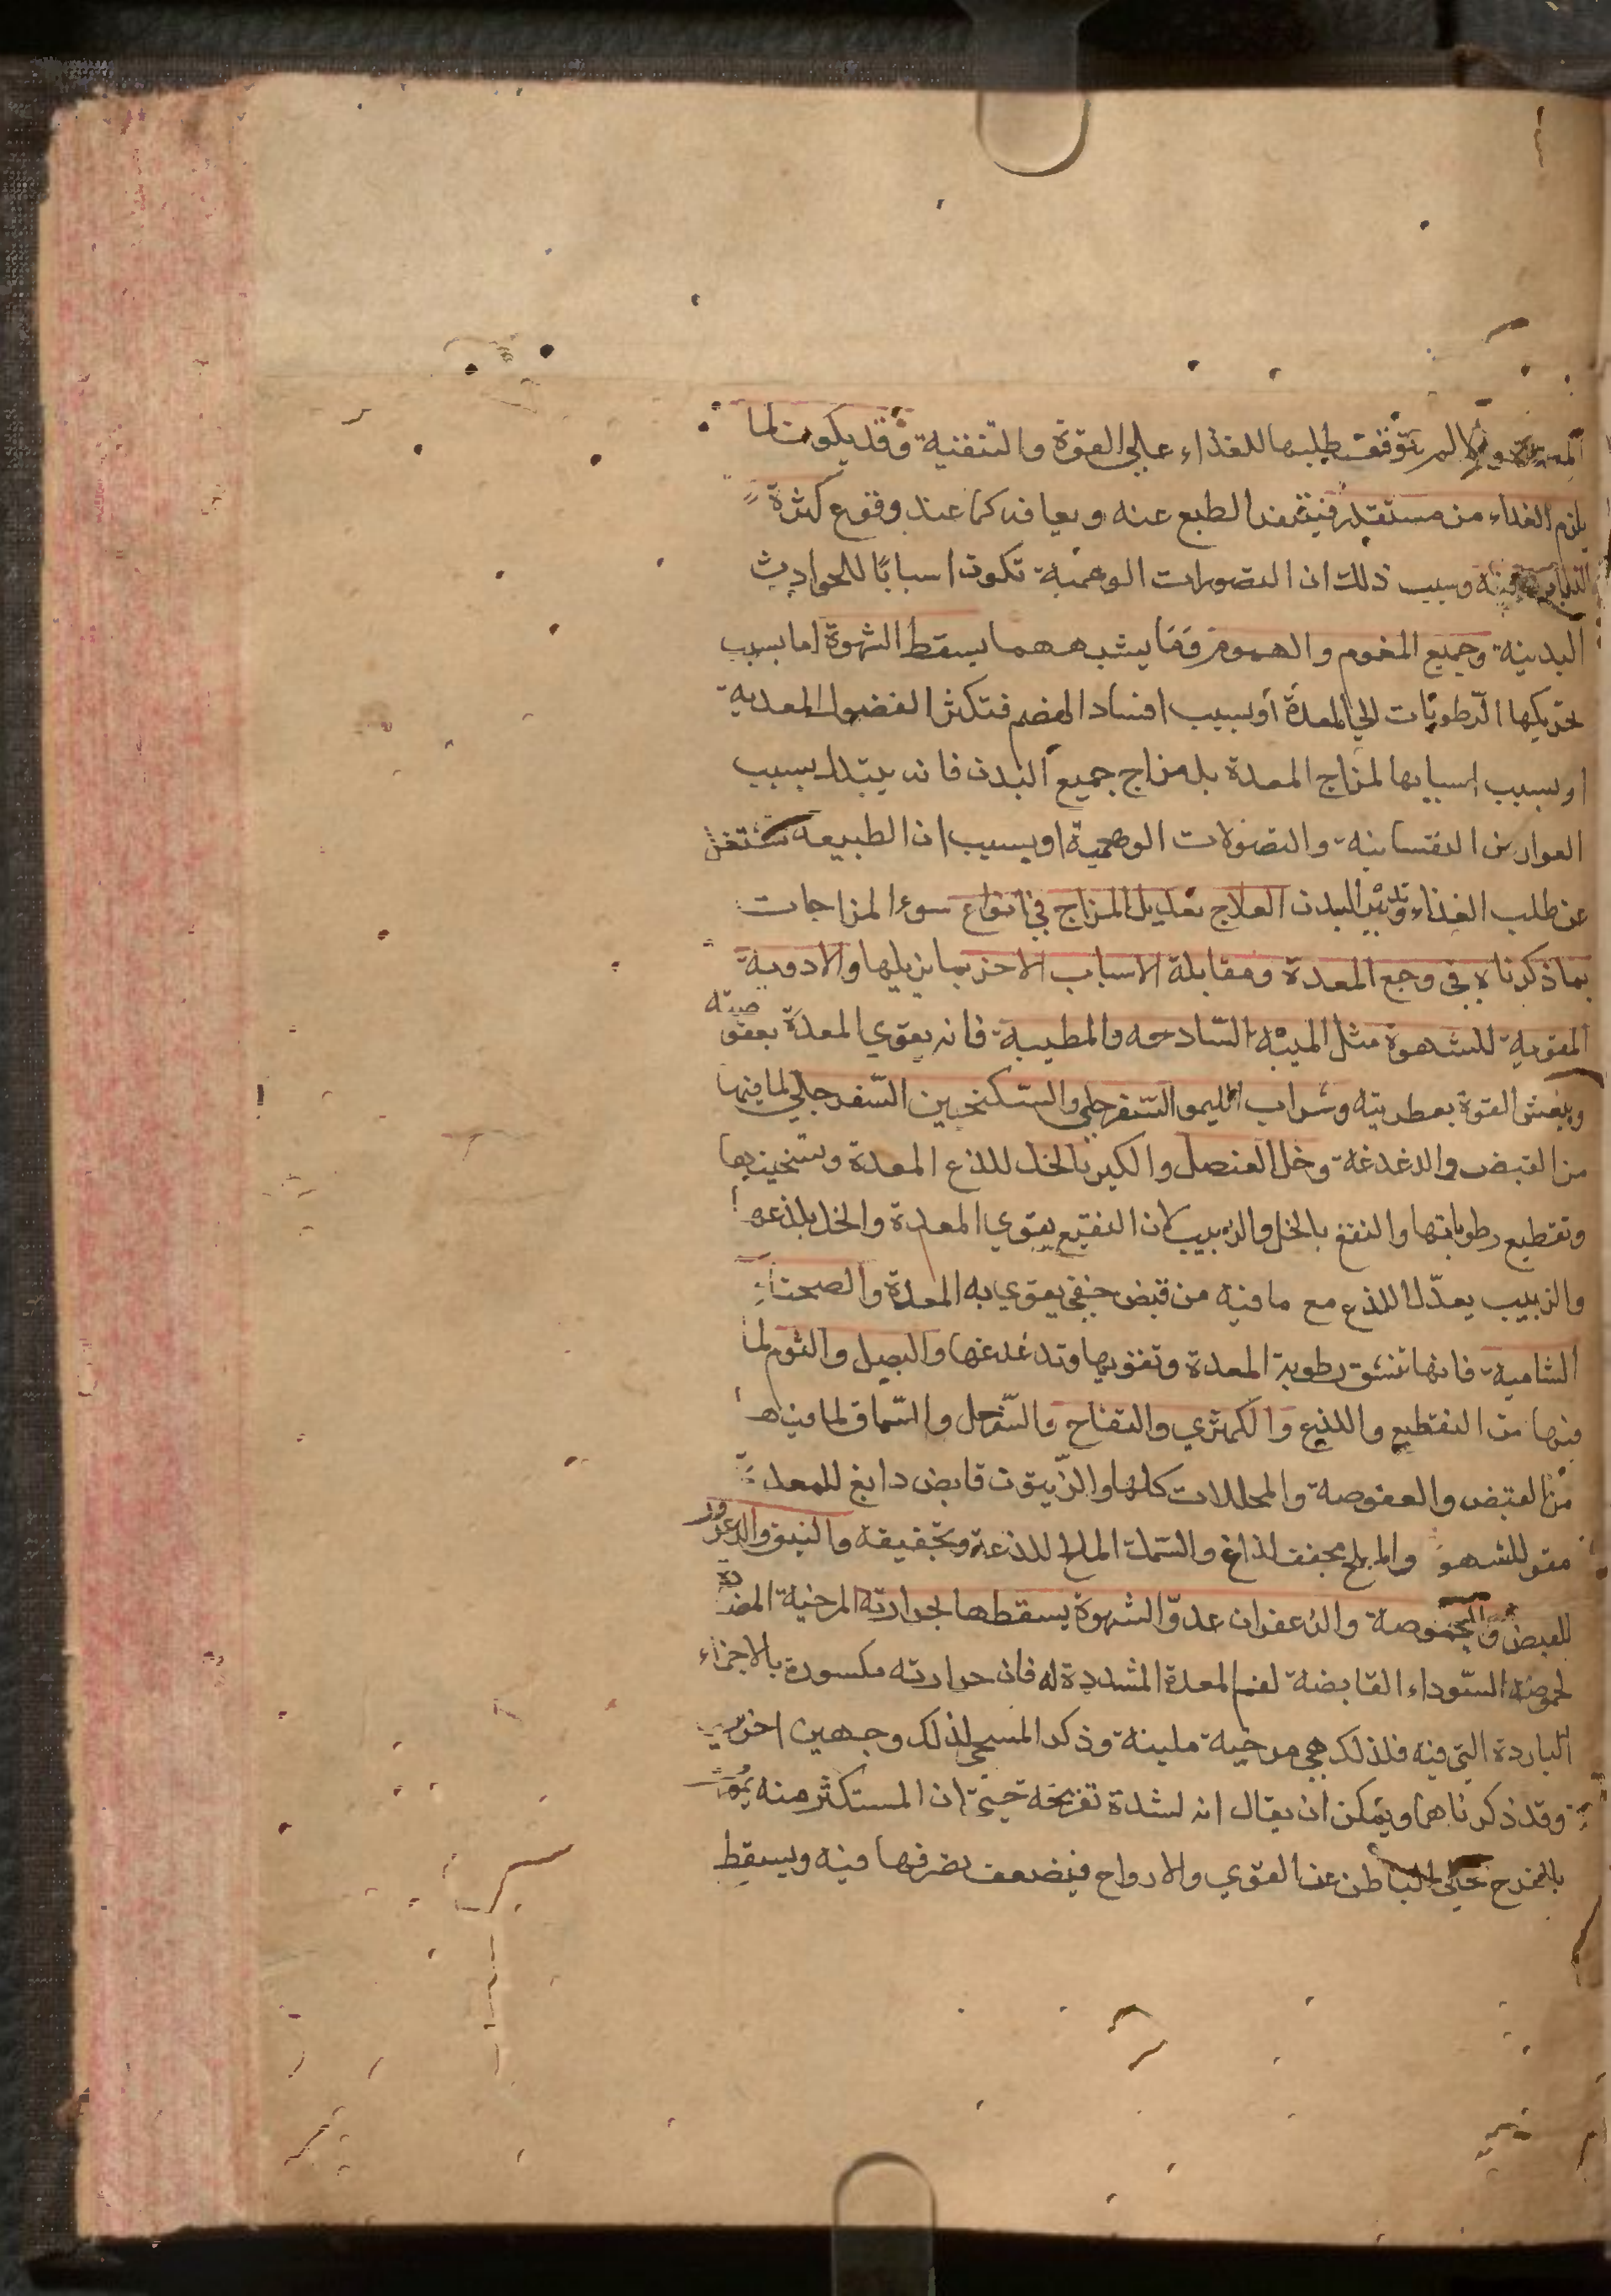 لم تتوقف طلبها للغذاء على القوة والتنفنية وقد يكون لما
يلزم الغداء من مستقذر فيتنفر الطبع عنه ويعافه كما عند وقوع كثرة
وسبب ذلك ان التصورات الوهمية تكون اسبابًا للحوادث
البدنية وجميع الغموم والهموم وما يشبههما يسقط الشهوة اما بسبب
تحريكها الرّطوبات الي المعدة او بسبب افساد الهضم فتكثر الفضول المعدية
او بسبب اسبابها لمزاج المعدة بل مزاج جميع البدن فانه يتبدل بسبب
العوارض النفسانية والتصولات الوهمية او بسبب ان الطبيعه تشتغل
عن طلب الغذاء وتدبير البدن العلاج تعديل المزاج في انواع سوء المزاجات
بما ذكرناه في وجع المعدة ومقابلة الاسباب الاخر بما يزيلها والادوية
المقوية للشهوة مثل الميبه السّادجه والمطيبة فانه يقوي المعدة بعفوصته
وينعش القوة بعطريته وشراب الليمو السّفرجلي والسّكنجبين السّفرجلي لما فيها
من القبض والدغدغة وخل العنصل والكبر بالخل للذع المعدة وتسخينها
وتقطيع رطوباتها والنعنع بالخل والزبيب لان النقيع يقوي المعدة والخل يلذعها
والزبيب يعدّل اللذع مع ما فيه من قبض خفي يقوي به المعدة والصحناء
الشامية فانها تنشق رطوبة المعدة وتقويها وتدغدغها والبصل والثوم لما
فيها من التقطيع واللذع والكمثري والتفاح والسّفرجل والسّماق لما فيها
من القبض والعفوصة والمخللات كلها والزّيتون قابض دابغ للمعدة
مقو للشهوة والمملح مجفف لذاع والسّمك المالح للذعة وتجفيفه والنبق والزعرور
للقبض والحموصة والزعفران عدوّ الشهوة يسقطها لحرارته المرخية المضادة
لحموصة السّوداء القابضة لفم المعدة المشددة له فان حرارته مكسورة بالاجزاء
الباردة التي فيه فلذلك هي مرخية ملينة وذكر المسيحي لذلك وجهين اخرين
وقد ذكرناهما ويمكن ان يقال انه لشدة تفريحه حتي ان المستكثر منه يموت
بالفرح الباطن عن القوي والارواح فيضعف تصرفها فيه ويسقط